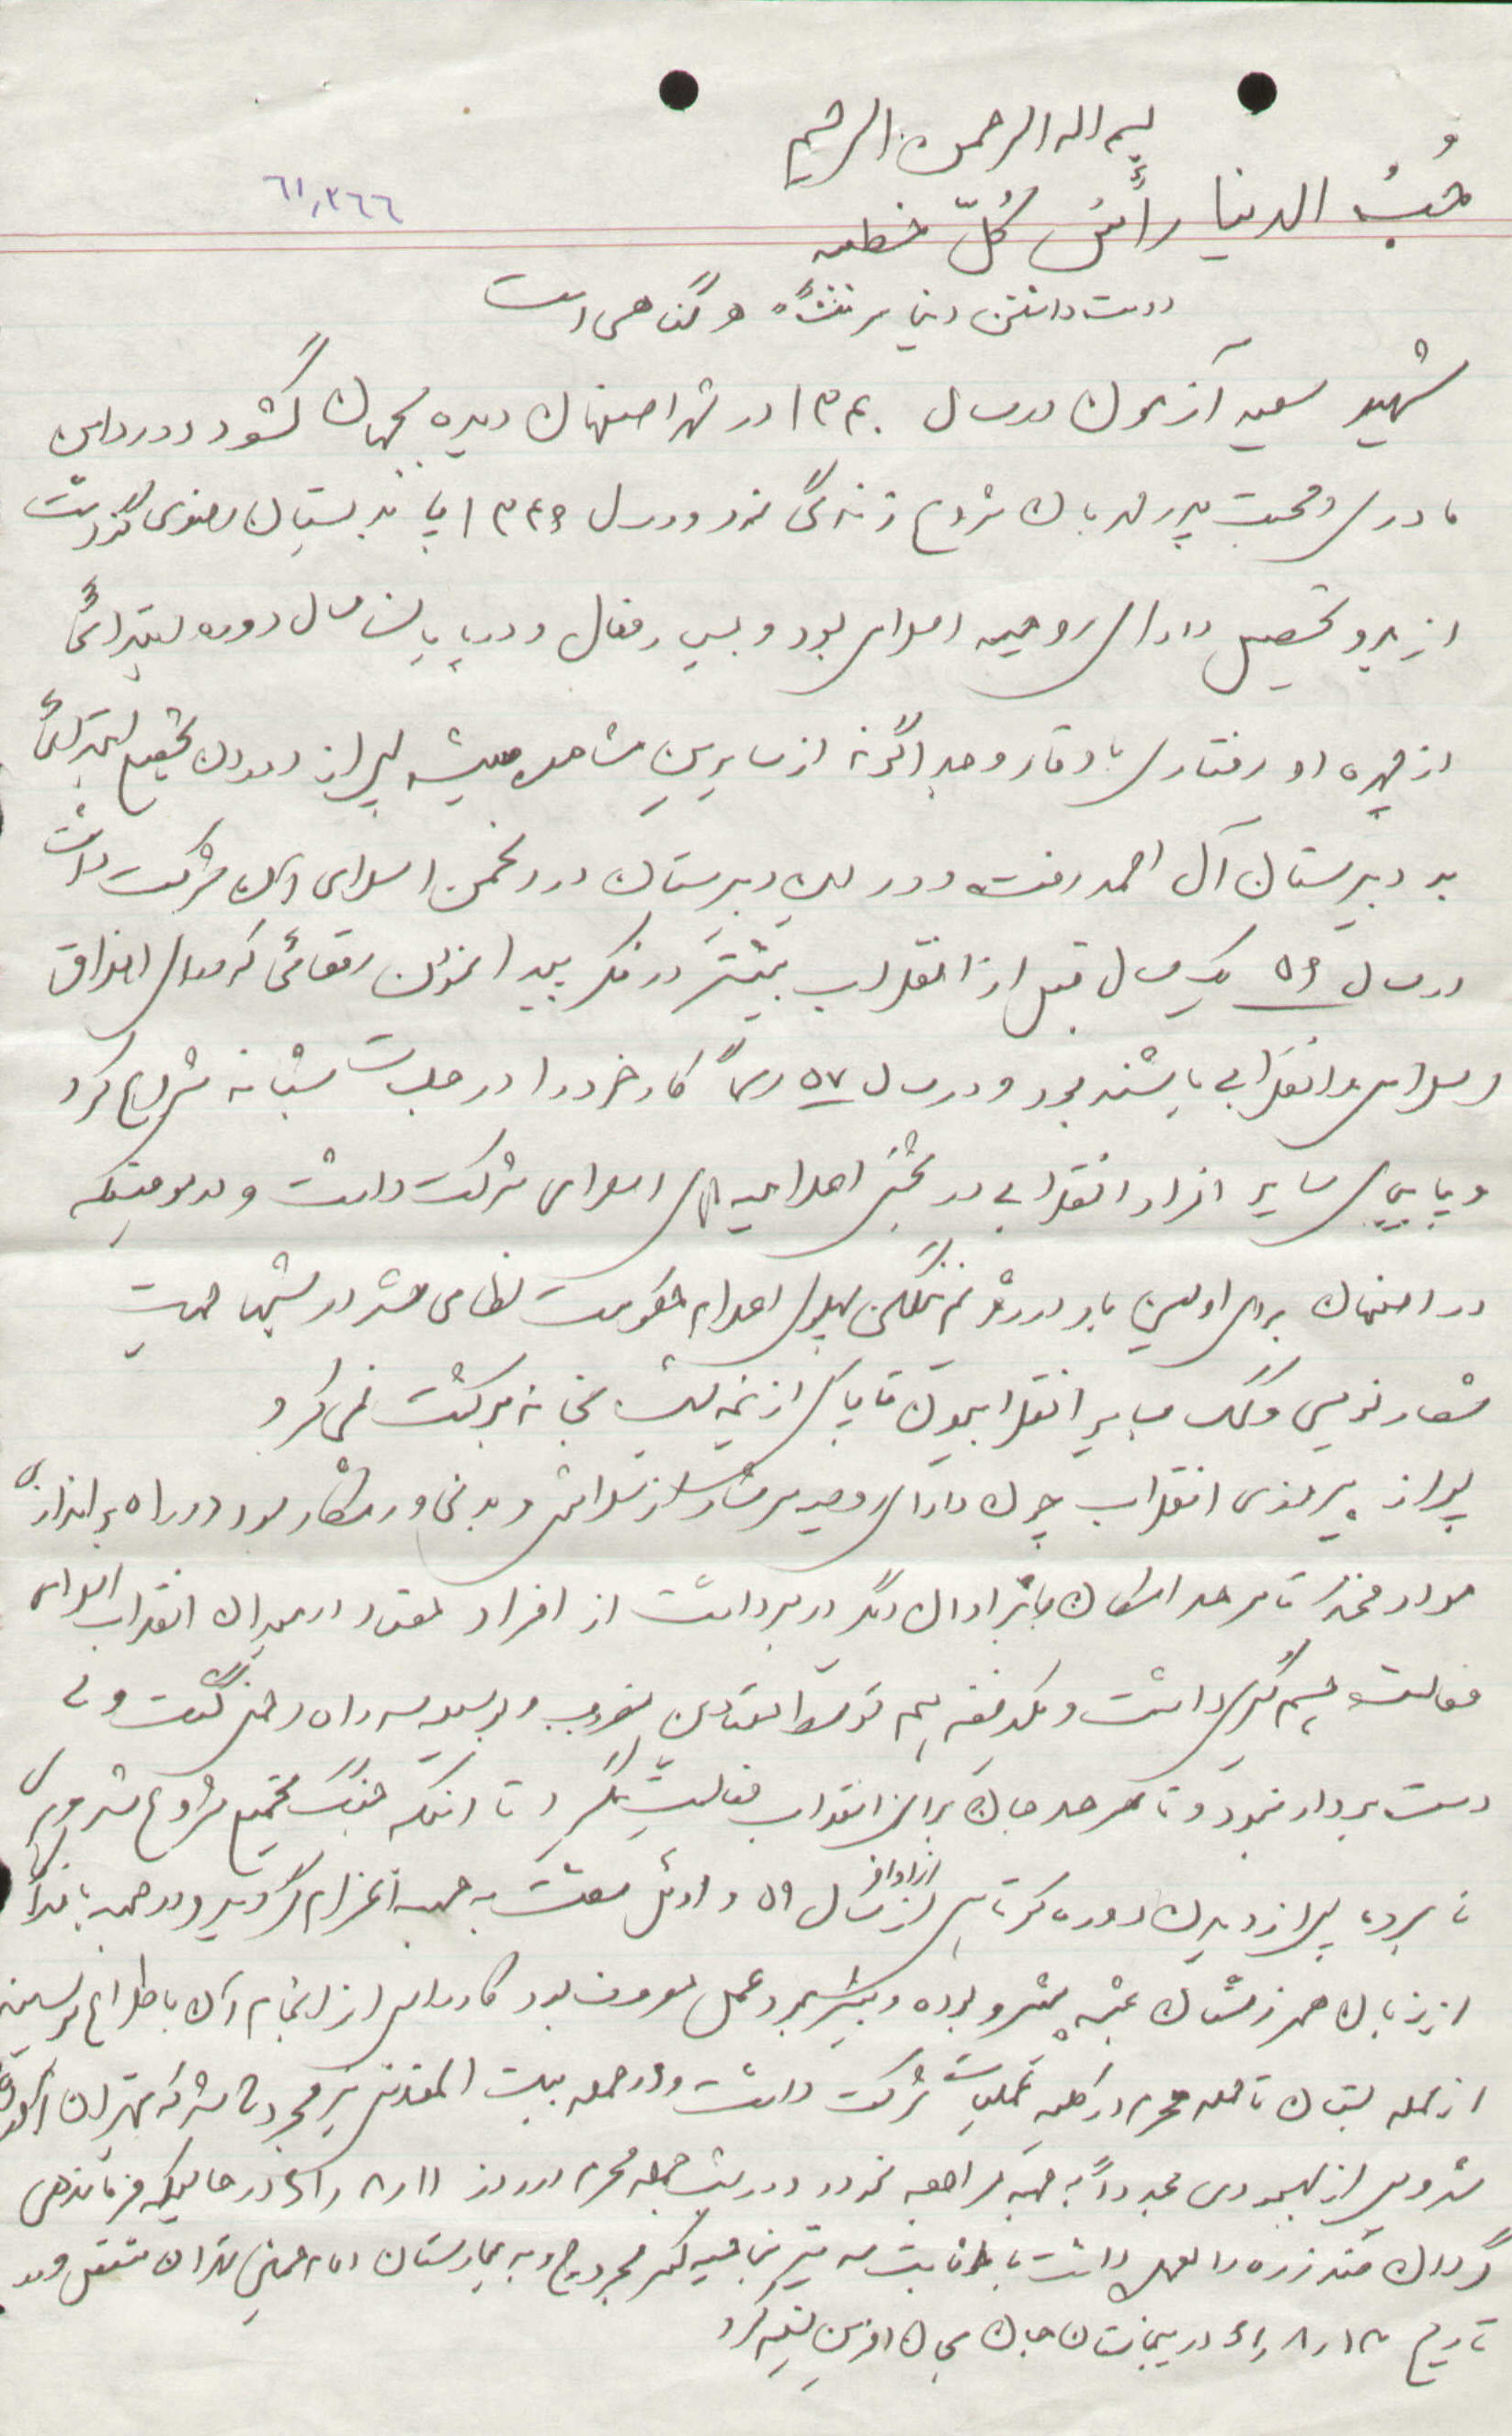 بسم اله الرحمن الرحیم
حُبُّ الدنیا رأس کُلّ خطیه
٦١,٢٦٦
دوست داشتن دنیا سرمنشاء هر گناهی است
شهید سعید آزمون در سال ۱۳۴۰ در شهر اصفهان دیده بجهان گشود و در دامن
مادری و محبت پدر مهربان شروع زندگی نمود و در سال ۱۳۴۶ پا به دبستان رضوی گذاشت
از بدو تحصیل دارای روحیه اسلامی بود و بسیار فعال و در پایان سال دوره ابتدائی
از چهره او رفتاری با وقار و جداگونه از سایرین مشاهده میشد پس از دوران تحصیل ابتدائی
به دبیرستان آل احمد رفت و در این دبیرستان در انجمن اسلامی آن شرکت داشت
در سال ۵۶ یک سال قبل از انقلاب بیشتر در فکر پیدا نمودن رفقائی که دارای اخلاق
اسلامی و انقلابی باشند بود و در سال ۵۷ رسماً کار خود را در جلسات شبانه شروع کرد
و بپای سایر افراد انقلابی در پخش اعلامیه های اسلامی شرکت داشت و در موقعیکه
در اصفهان برای اولین بار در رژیم ننگین پهلوی اعلام حکومت نظامی شد در شبها جهت
شعار نویسی و کمک سایر انقلابیون تا پاسی از نیمه شب بخانه برگشت نمی کرد
پس از پیروزی انقلاب چون دارای روحیه سرشار از و بدنی ورزشکار بود در راه براندازی
مواد مخدر تا سر حد امکان با برادران دیگر در برداشت از افراد معتاد در میدان انقلاب اسلامی
فعالیت چشم گیری داشت و یکدفعه هم توسط معتادین مضروب و بوسیله زخمی گشت ولی
دست بردار نبود و تا سر حد جان برای انقلاب فعالیت میکرد تا اینکه جنگ تحمیلی شروع شد
نامبرده پس از دیدن دوره از اواخر سال ۵۹ و اوائل شصت به جبهه اعزام گردید و در جبهه بنا
از زبان همرزمشان همیشه پیشرو بوده و به عمل معروف بود
از حمله بستان تا حمله محرم در کلیه عملیات شرکت داشت و در حمله بیت المقدس نیز مجروح
شد و پس از بهبودی مجدداً به جبهه مراجعه نمود و در شب حمله محرم در روز ۱۱ر۸ر۶۱ در حالیکه فرماندهی
گردان را بعهده داشت با اصابت سه تیر بناحیه کمر مجروح و به بیمارستان امام خمینی تهران منتقل و در
تاریخ ۱۳ر۸ر۶۱ در بیمارستان جان بجان آفرین تسلیم کرد